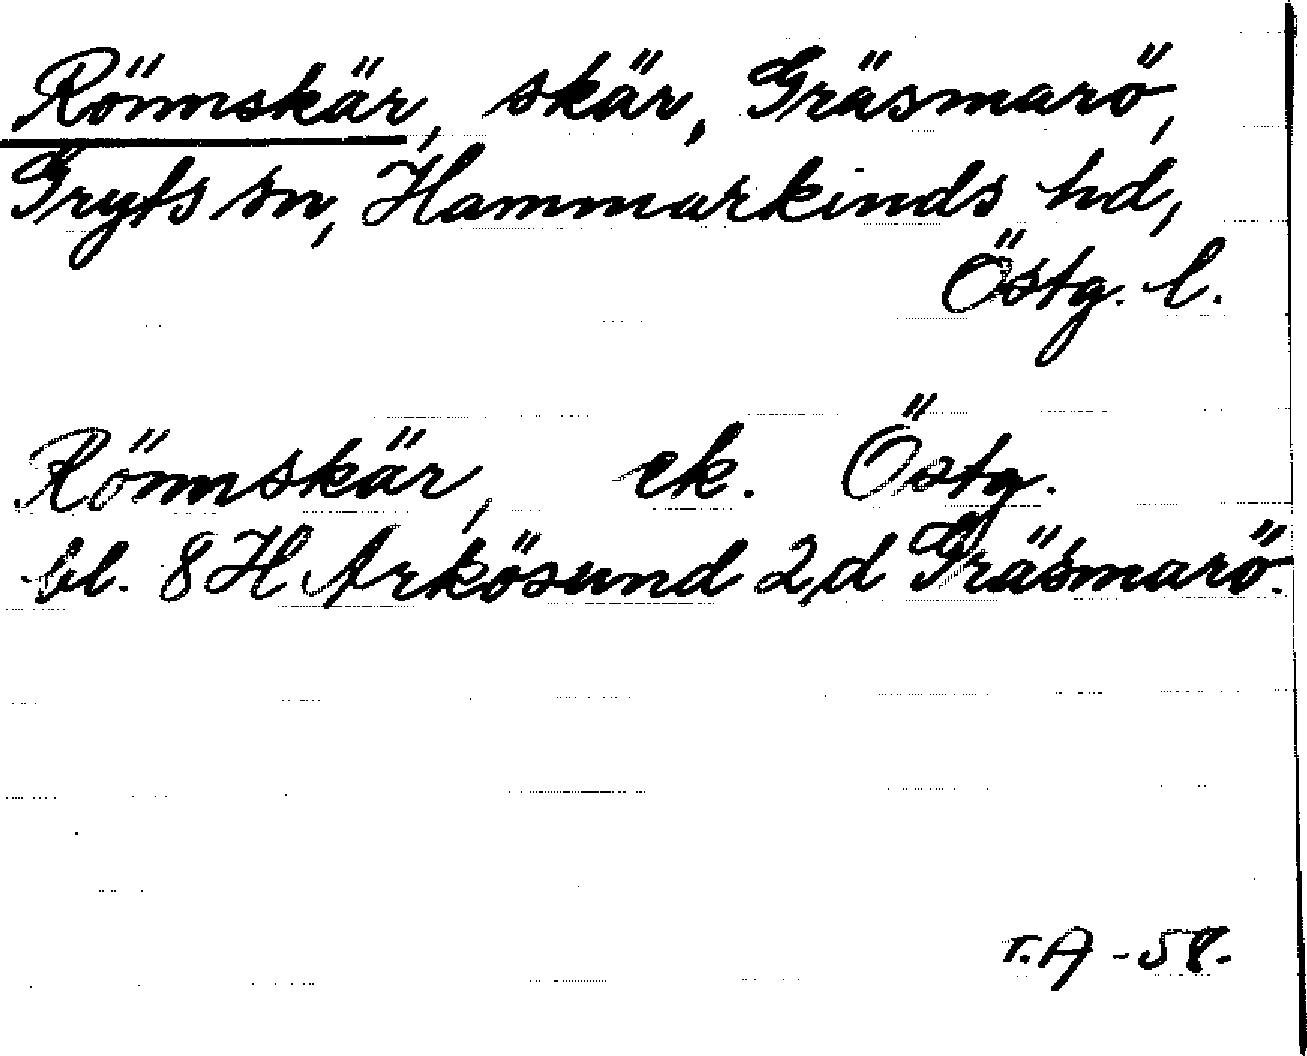 Rönnskär, skär, Gräsmarö,
Gryts sn, Hammarkinds hd,
Östg. l.
Rönnskär, ek. Östg.
bl. 8H Arkösund 2d Gräsmarö.
r.A -58.